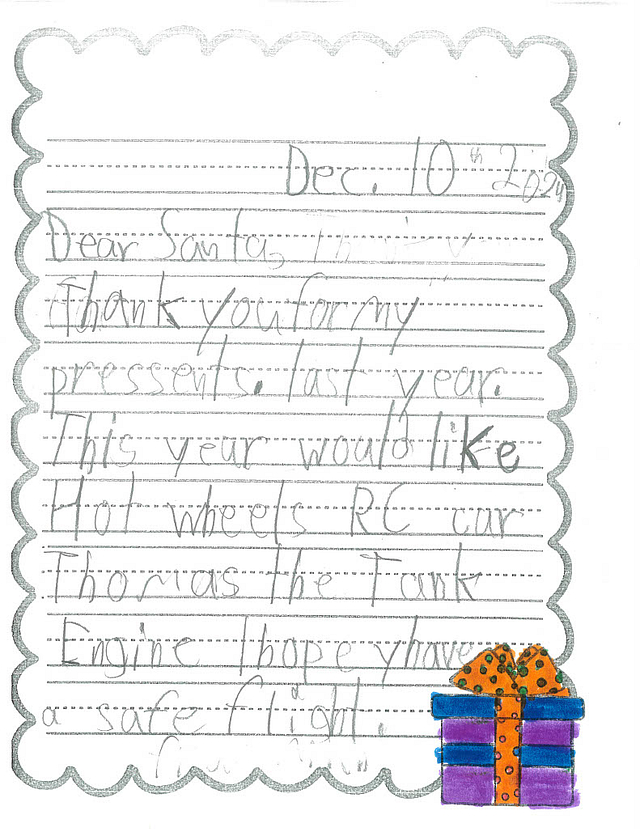 Dec. 10th 2024
Dear Santa,
Thank you for my
pressents. last year.
This year would like
Hot wheels RC car
Thomas the Tank
Engine I hope y have
a safe flight.